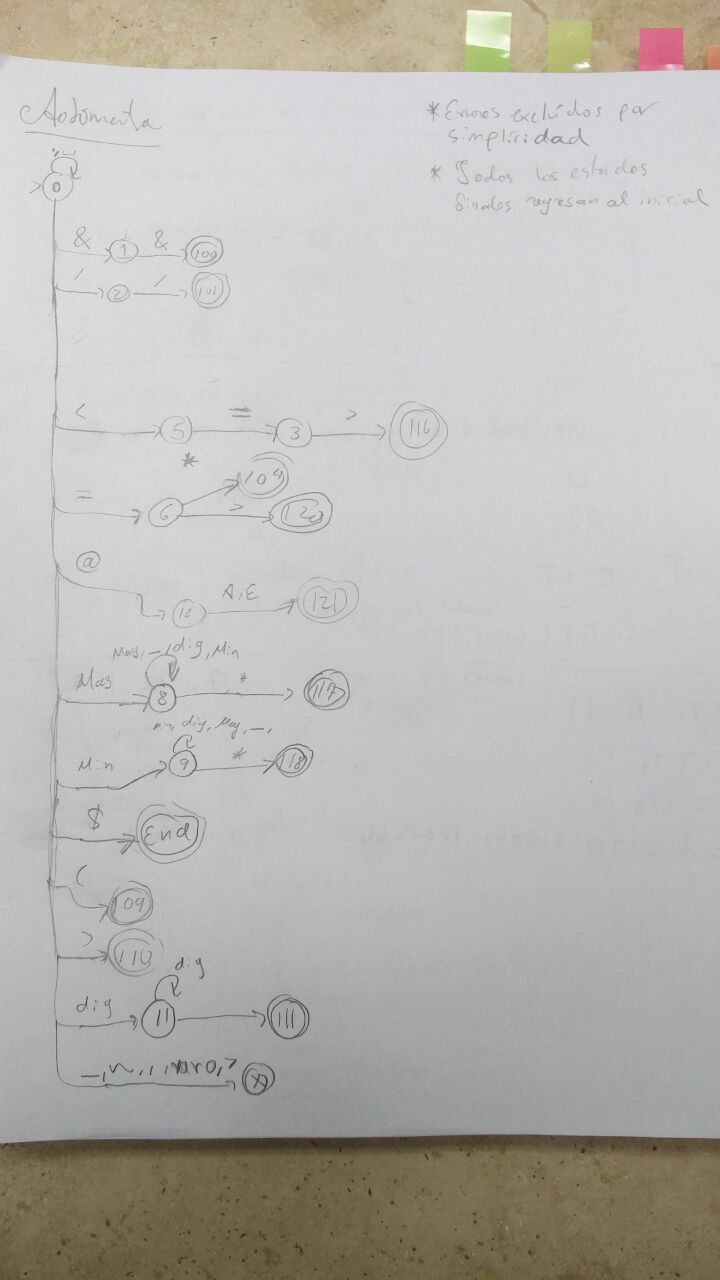 Autómata
* Errores excluidos por
simplicidad
* Todos los estados
finales regresan al inicial
0
& 1 & 100
/ 2 / 101
< 5 = 3 > 116
*
104
= 6 > 120
@ 12 A,E 121
May, _, dig, Min
May 8 * 117
Min, dig, May, _,
Min 9 * 118
$ End
( 109
) 110
dig
dig 11 111
raro